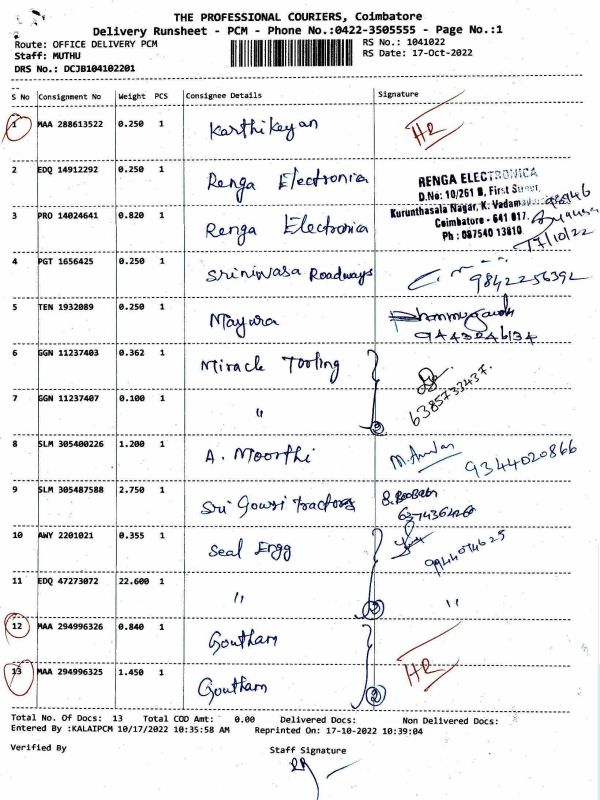 THE PROFESSIONAL COURIERS, Coimbatore
Delivery Runsheet - PCM - Phone No.:0422-3505555 - Page No.:1
Route: OFFICE DELIVERY PCM RS No.: 1041022
Staff: MUTHU RS Date: 17-Oct-2022
DRS No.: DCJB104102201
S No Consignment No Weight PCS Consignee Details Signature
1 MAA 288613522 0.250 1 Karthikeyan HR
2 EDQ 14912292 0.250 1 Renga Electronica
RENGA ELECTRONICA
D.No: 10/261 B, First Street,
Kurunthasala Nagar, K.
Coimbatore - 641 017.
Ph : 087540 13810
3 PRO 14024641 0.820 1 Renga Electronica
17/10/22
4 PGT 1656425 0.250 1 Srinivasa Roadways 9842256392
5 TEN 1932089 0.250 1 Mayura
9443246134
6 GGN 11237403 0.362 1 Miracle Tooling
6385733437.
7 GGN 11237407 0.100 1 "
8 SLM 305400226 1.200 1 A. Moorthi 9344020866
9 SLM 305487588 2.750 1 Sri Gowri Tractors
10 AWY 2201021 0.355 1 Seal Engg 9944074625
11 EDQ 47273072 22.600 1 " "
12 MAA 294996326 0.840 1 Goutham
13 MAA 294996325 1.450 1 Goutham 2 HR
Total No. Of Docs: 13 Total COD Amt: 0.00 Delivered Docs: Non Delivered Docs:
Entered By :KALAIPCM 10/17/2022 10:35:58 AM Reprinted On: 17-10-2022 10:39:04
Verified By Staff Signature